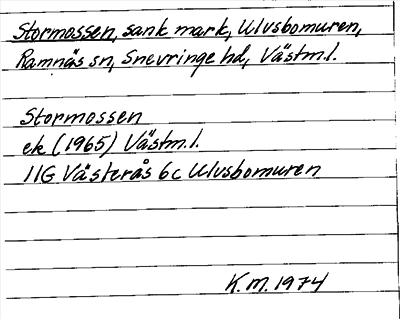 Stormossen, sank mark, Ulvsbomuren,
Ramnäs sn, Snevringe hd, Västm.l.
Stormossen
ek (1965) Västm.l.
11G Västerås 6c Ulvsbomuren
K.M. 1974